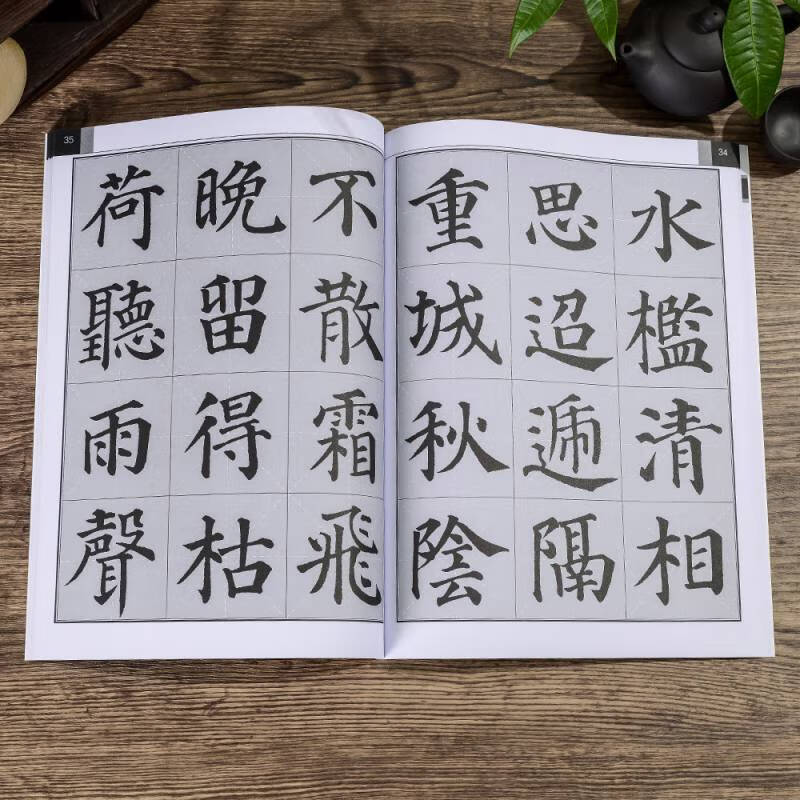 34
水檻清相
思迢逓隔
重城秋陰
35
不散霜飛
晚留得枯
荷聽雨聲